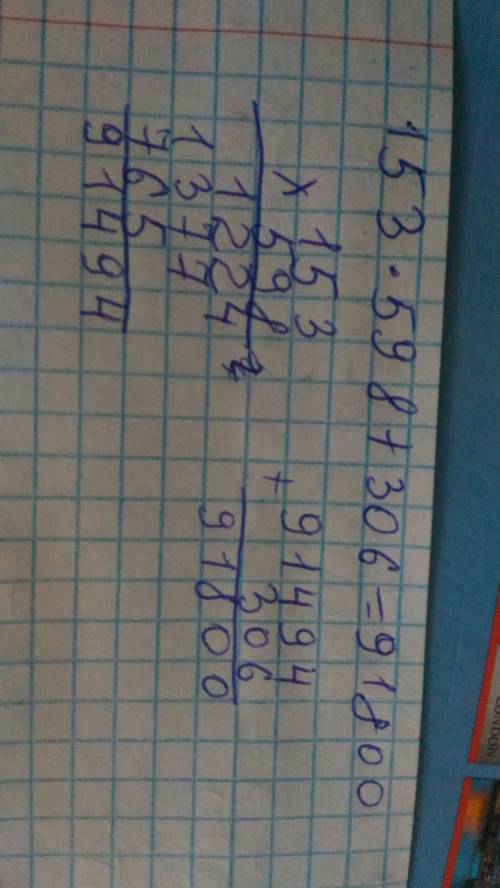 153·598+306=91800
×153
598
1224
1377
765
91494
+91494
306
91800